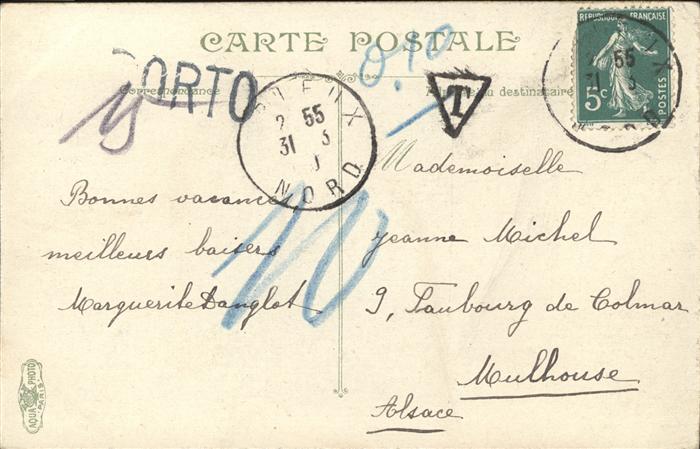 CARTE POSTALE
REPUBLIQUE FRANÇAISE
5c
POSTES
PORTO
0.10
T
Correspondance
du destinataire
2 55
31 3
NORD
55
31 3
Bonnes vacances,
meilleurs baisers
Marguerite Danglot
Mademoiselle
Jeanne Michel
9, Faubourg de Colmar
Mulhouse
Alsace
10
AQUA PHOTO
PARIS